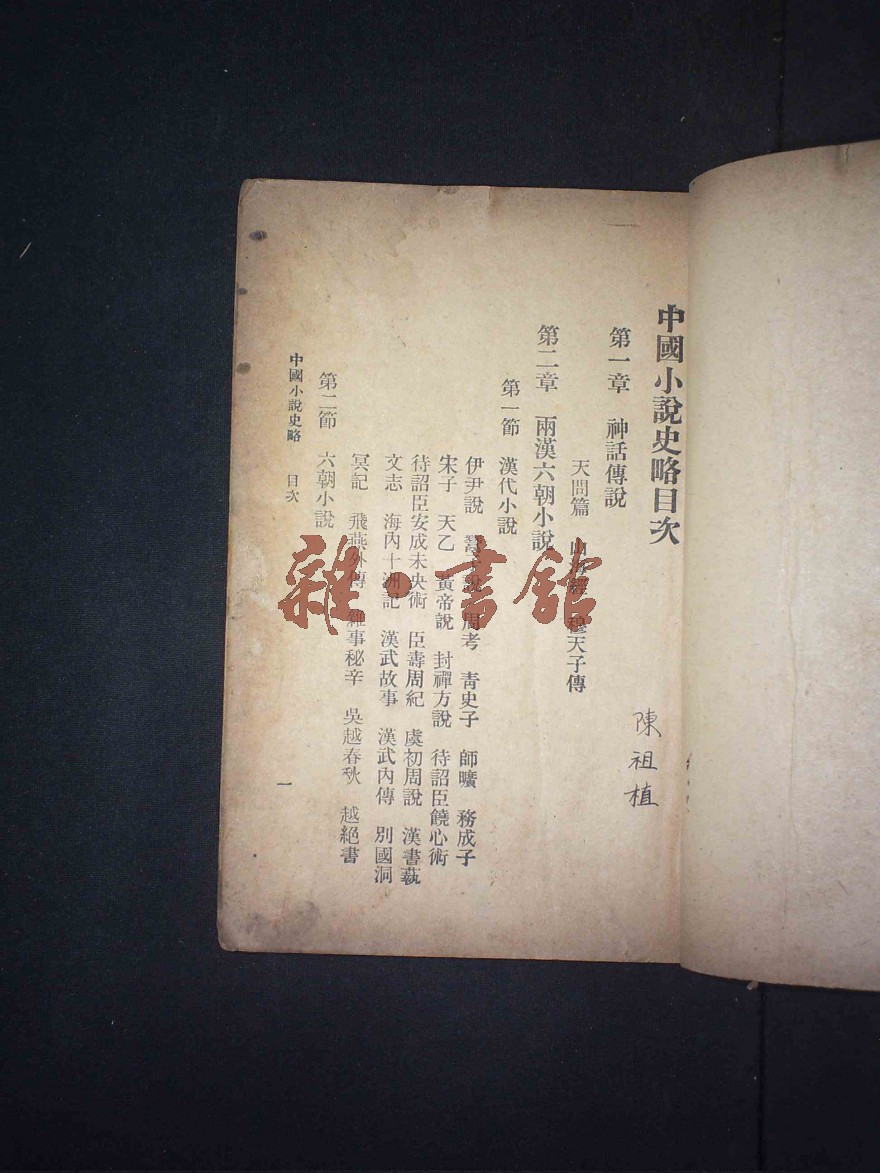 中國小說史略目次
陳祖植
第一章 神話傳說
天問篇 山海經 穆天子傳
第二章 兩漢六朝小說
第一節 漢代小說
伊尹說 鬻子說 周考 青史子 師曠 務成子
宋子 天乙 黃帝說 封禪方說 待詔臣饒心術
待詔臣安成未央術 臣壽周紀 虞初周說 漢書蓺
文志 海內十洲記 漢武故事 漢武內傳 別國洞
冥記 飛燕外傳 雜事秘辛 吳越春秋 越絕書
第二節 六朝小說
中國小說史略 目次
一
雜·書館